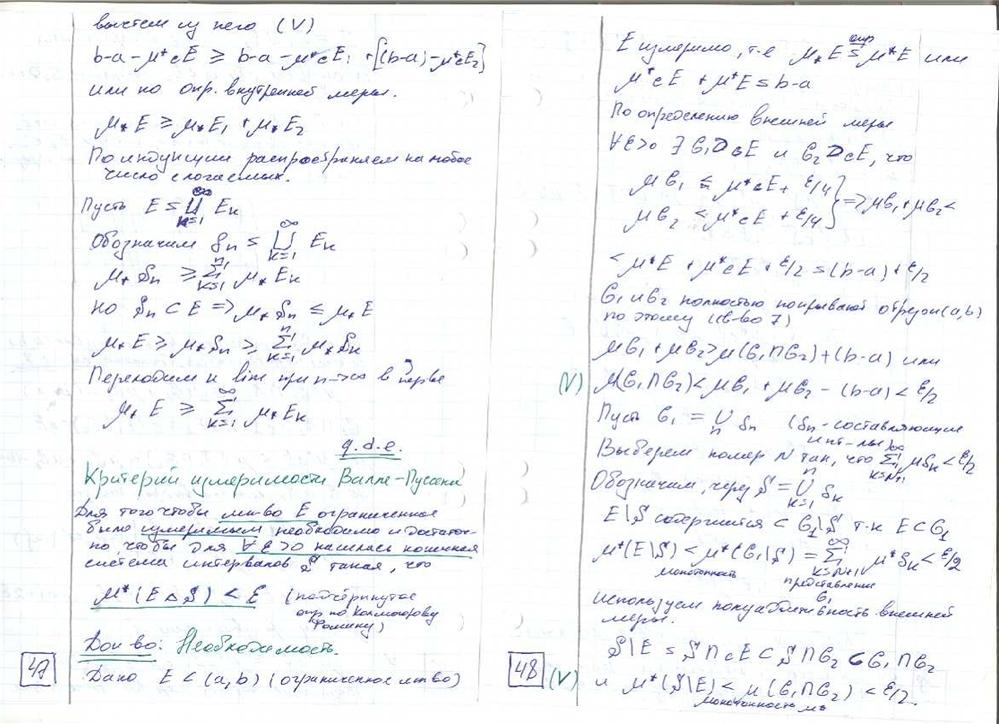 вычтем из него (V)
b-a-μ*cE ≥ b-a-μ*cE₁ + [(b-a)-μ*cE₂]
или по опр. внутренней меры.
μ⁎E ≥ μ⁎E₁ + μ⁎E₂
По индукции распространяем на любое
число слогаемых.
Пусть E = ⋃_{k=1}^{∞} E_k
Обозначим S_n = ⋃_{k=1}^{∞} E_k
μ⁎S_n ≥ ∑_{k=1}^{n} μ⁎E_k
но S_n ⊂ E => μ⁎S_n ≤ μ⁎E
μ⁎E ≥ μ⁎S_n ≥ ∑_{k=1}^{n} μ⁎S_k
Переходим к lim при n->∞ в
μ⁎E ≥ ∑_{k=1}^{∞} μ⁎E_k
q.d.e.
Критерий измеримости Валле-Пуссена
Для того чтобы мн-во E ограниченное
было измеримым необходимо и достаточ-
но, чтобы для ∀ε>0 нашлась конечная
система интервалов S такая, что
μ*(E∆S) < ε (подчёркнутое
опр по Колмогорову
Фомину)
Док-во: Необходимость.
Дано E ⊂ (a,b) (ограниченное мн-во)
47
E измеримо, т.е μ⁎E опр = μ*E или
μ*cE + μ*E = b-a
По определению внешней меры
∀ε>0 ∃ G₁⊃E и G₂⊃cE, что
μG₁ ≤ μ*cE + ε/4
μG₂ < μ*cE + ε/4 } => μG₁ + μG₂ <
< μ*E + μ*cE + ε/2 = (b-a) + ε/2
G₁ и G₂ полностью покрывают отрезок (a,b)
по этому (св-во 7)
μG₁ + μG₂ > μ(G₁∩G₂) + (b-a) или
(V) μ(G₁∩G₂) < μG₁ + μG₂ - (b-a) < ε/2
Пусть G₁ = ⋃_n δ_n (δ_n - составляющие
инт-лы)
Выберем номер N так, что ∑_{k=N+1}^{∞} μδ_k < ε/2
Обозначим, через S = ⋃_{k=1}^{n} δ_k
E\S содержится ⊂ G₁\S т.к E⊂G₁
μ*(E\S) < μ*(G₁\S) = ∑_{k=N+1}^{∞} μ*δ_k < ε/2
монотонность представление
G₁
используем полуаддитивность внешней
меры.
S\E = S∩cE ⊂ S∩G₂ ⊂ G₁∩G₂
48 (V) и μ*(S\E) < μ(G₁∩G₂) < ε/2.
монотонность μ*